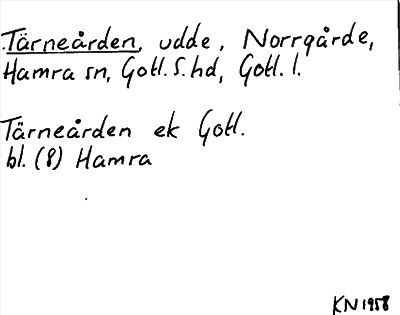 Tärneården, udde, Norrgårde,
Hamra sn, Gotl. S. hd, Gotl. l.
Tärneården ek Gotl.
bl. (8) Hamra
KN 1958